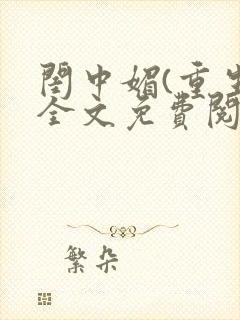 閨中媚(重生
全文免費閱
繁朵